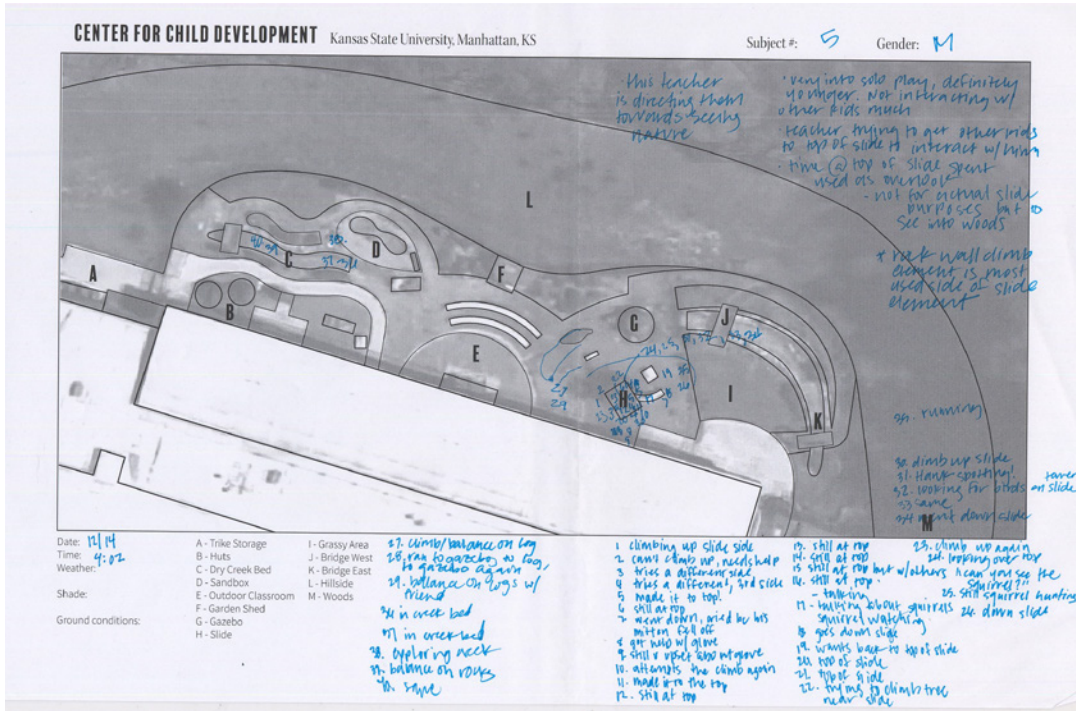 CENTER FOR CHILD DEVELOPMENT Kansas State University, Manhattan, KS
Subject #: 5 Gender: M
· this teacher
is directing them
towards seeing
nature
· very into solo play, definitely
younger. Not interacting w/
other kids much
· teacher trying to get other kids
to top of slide to interact w/ him
· time @ top of slide spent
used as overlook
- not for actual slide
purposes but to
see into woods
* rock wall climb
element is most
used side of slide
element
L
A
B
C
D
E
F
G
H
I
J
K
M
running
30. climb up slide
31. Hawk spotting!
32. looking for birds on slide
tower
33 same
34 went down slide
Date: 12/14
Time: 4:02
Weather:
Shade:
Ground conditions:
A - Trike Storage
B - Huts
C - Dry Creek Bed
D - Sandbox
E - Outdoor Classroom
F - Garden Shed
G - Gazebo
H - Slide
I - Grassy Area
J - Bridge West
K - Bridge East
L - Hillside
M - Woods
27. climb/balance on log
28. ran to gazebo, to log,
to gazebo again
29. balance on logs w/
friend
36 in creek bed
37 in creek bed
38. exploring creek
39. balance on rocks
40. same
1. climbing up slide side
2 can't climb up, needs help
3 tries a different side
4 tries a different, 3rd side
5 made it to top!
6 still at top
7 went down, cried bc his
mitten fell off
8 got help w/ glove
9 still upset about glove
10. attempts the climb again
11. made it to the top
12. still at top
13. still at top
14. still at top
15 still at top but w/ others "can you see the
squirrel?"
16. still at top.
- talking
17 - talking about squirrels
squirrel watching
18 goes down slide
19. wants back to top of slide
20. top of slide
21. top of slide
22. trying to climb tree
near slide
23. climb up again
24. looking over top
25. still squirrel hunting
26. down slide